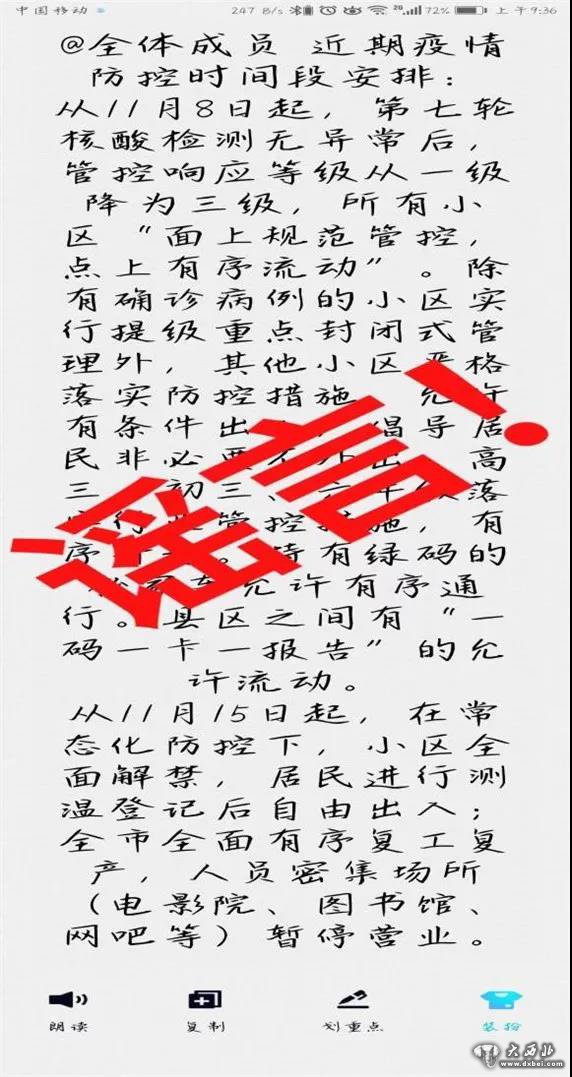 中国移动 247 B/s 2G 72% 上午9:36
@全体成员 近期疫情
防控时间段安排：
从11月8日起，第七轮
核酸检测无异常后，
管控响应等级从一级
降为三级，所有小
区“面上规范管控，
点上有序流动”。除
有确诊病例的小区实
行提级重点封闭式管
理外，其他小区严格
落实防控措施，允许
有条件出 倡导居
民非必要不外出。高
三 初三、 落
行 管控措施，有
序 。持有绿码的
允许有序通
行。县区之间有“一
码一卡一报告”的允
许流动。
从11月15日起，在常
态化防控下，小区全
面解禁，居民进行测
温登记后自由出入；
全市全面有序复工复
产，人员密集场所
（电影院、图书馆、
网吧等）暂停营业。
谣言！
朗读 复制 划重点 装扮
大西北
www.dxbei.com